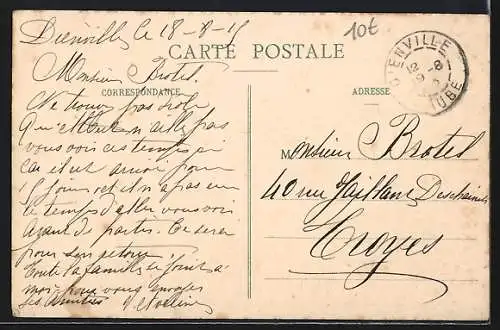 Dienville le 18-8-15
10€
CARTE POSTALE
DIENVILLE
AUBE
CORRESPONDANCE
ADRESSE
Monsieur Brotel.
Ne trouvez pas drôle
n'aille pas
vous voir ces temps ci
car il est arrivé pour
15 jours et il n'a pas eu
le temps d'aller vous voir
avant de partir. Ce sera
pour son retour
Toute la famille se joint à
moi pour vous envoyer
ses amitiés
Monsieur Brotel
40 rue Jaillant Deschainets
Troyes